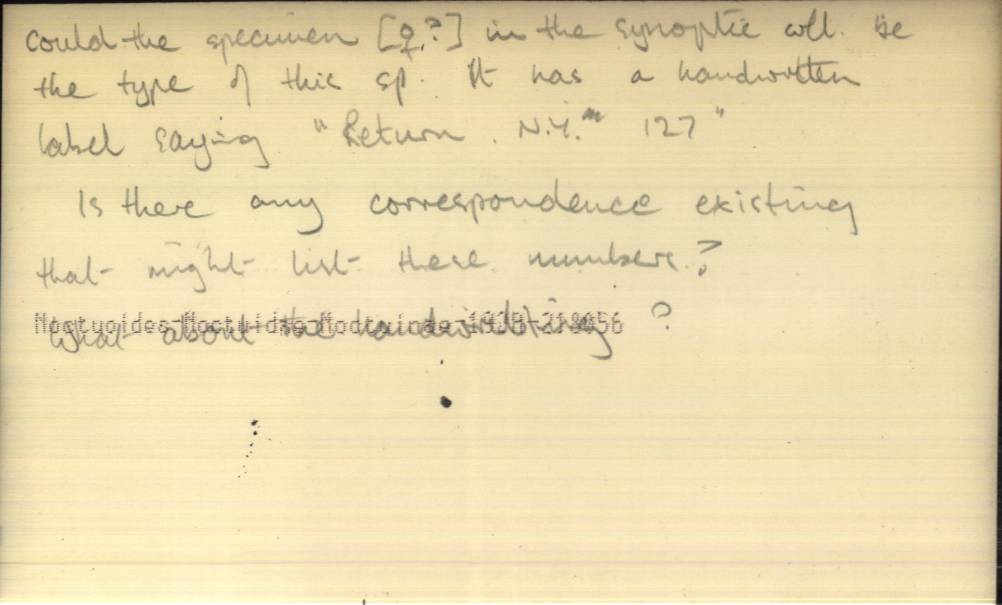 could the specimen [♀?] in the synoptic coll. be
the type of this sp. It has a handwritten
label saying "Return. N.Y.
127"
Is there any correspondence existing
that might list these numbers?
Noctuoidea-Noctuidae-Noctuinae
What about the handwriting?